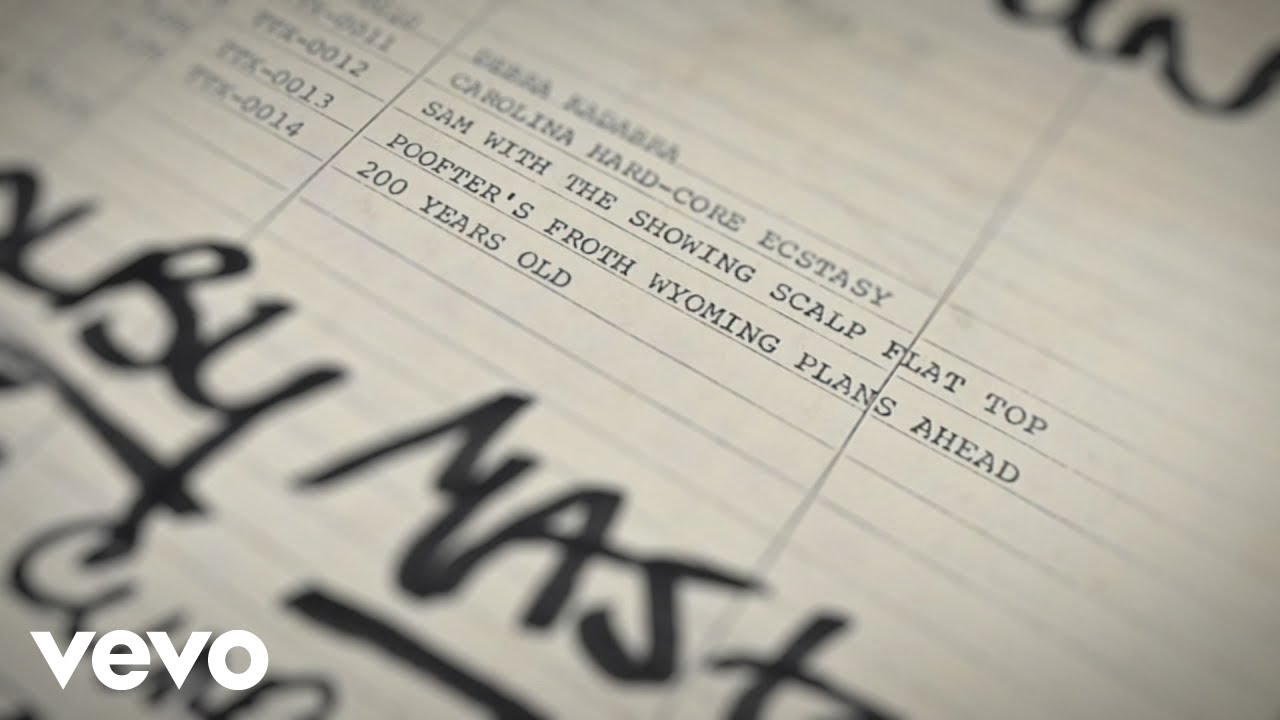 TTX-0011
TTX-0012 CAROLINA HARD-CORE ECSTASY
TTX-0013 SAM WITH THE SHOWING SCALP FLAT TOP
TTX-0014 POOFTER'S FROTH WYOMING PLANS AHEAD
200 YEARS OLD
BY MAST
vevo